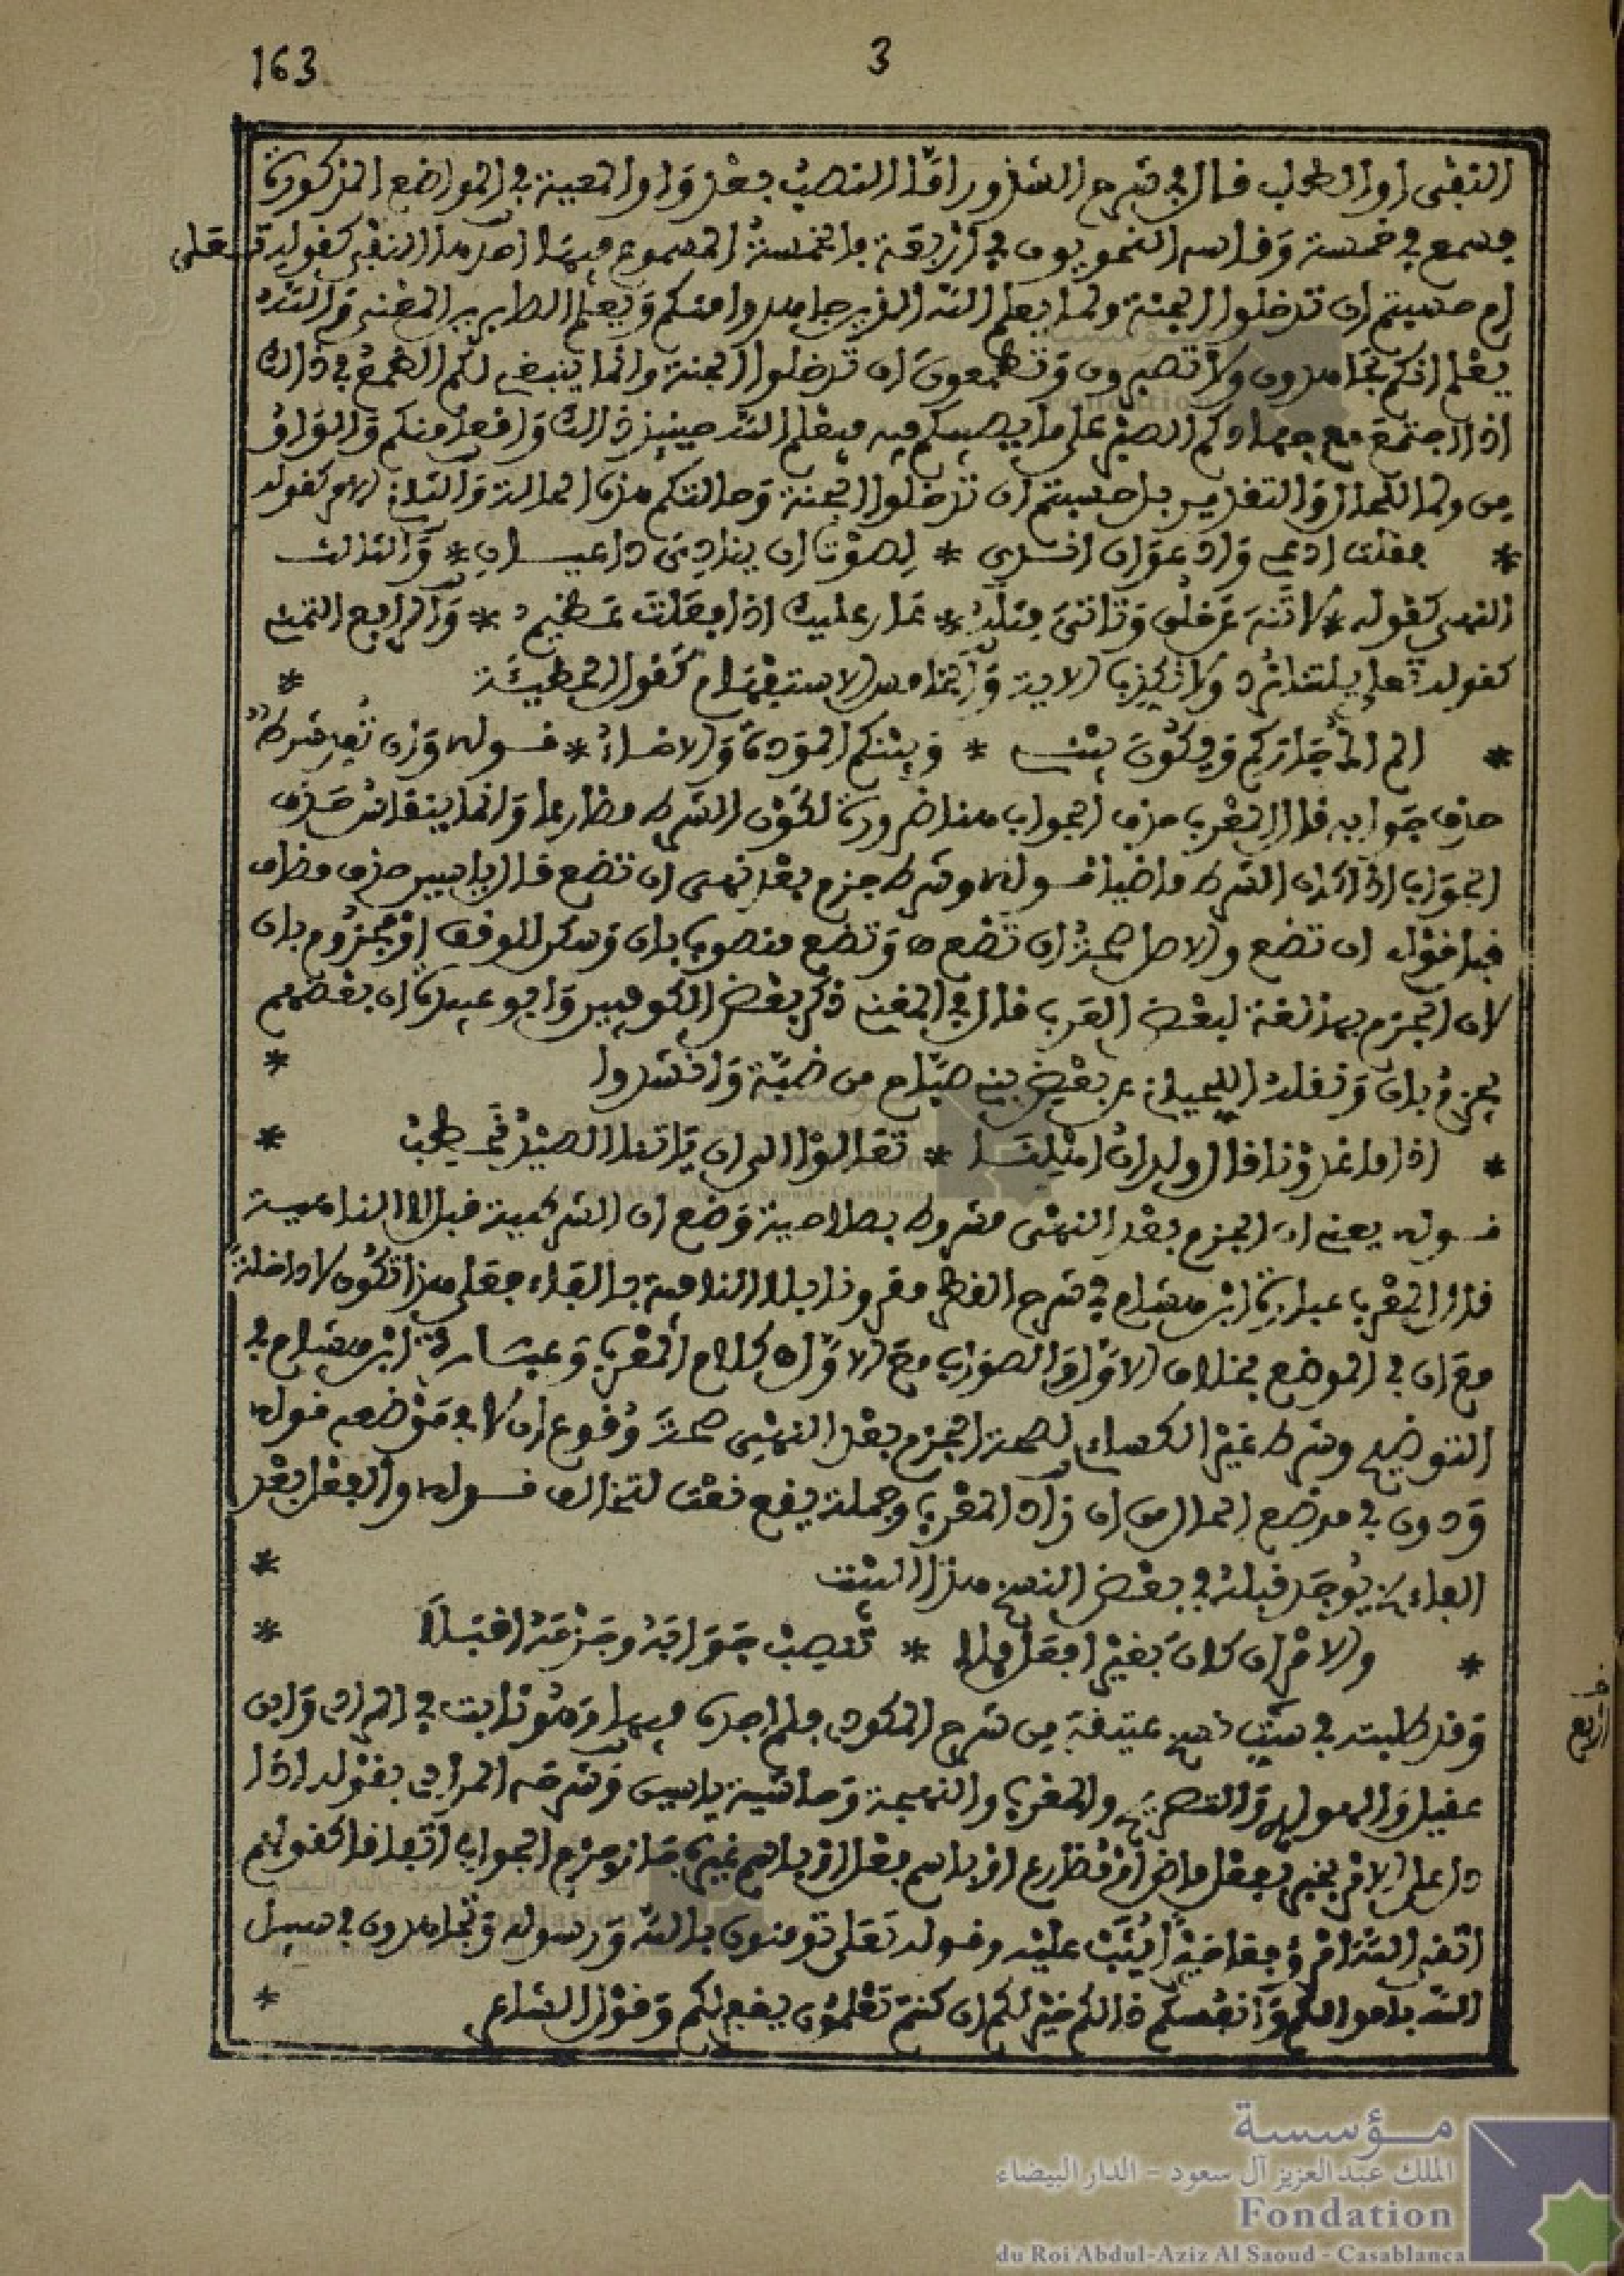 163
3
النفي او الطلب قال في شرح الشذور وامّا النصب بعْد وَاو المعية في المواضع المذكورة
فسمع في خمسة وَقاسه النحويون في أرْبعَة فالخمسة المسموع فيها احدها النفْي كقوله تعلى
ام حسبتم ان تدخلوا الجنة ولما يعلم الله الذين جاهدوا منكم وَيعلم الصابرين المعْنى وَالله
يعْلم انكم تجَاهدون ولا تصبرون وَتطمعونَ ان تدخلوا الجنة وانما ينبغي لكم الطمعُ في ذالك
اذا اجتمعَ مع جهادكم الصبْر على ما يصيبكم فيه فيعْلم الله حينئذ ذالك وَاقعا منكم وَالوَاوُ
من ولما للحال وَالتقدير بل حسبتم ان تدْخلوا الجنة وَحالتكم هذه الحالة وَالثاني الامر كقوله
* فقلت ادعي وَادعوَ ان اندى * لِصوْت ان ينادِيَ داعيان * وَالثالث
النهي كقوله * لا تنهَ عَن خلُق وَتاتيَ مثلَه * عَار عليك اذا فعَلتَ عَظيم * وَالرابع التمني
كقوله تعلى يليتنا نرد ولا نكذب الاية وَالخامس الاستفهَام كقول الحطيئة *
* الم اك جَاركم وَيكُونَ بيْني * وَبيْنكم المودة وَالاخاء * قوله وَإن تُعِر شرطا
حذف جوَابه قال المعْرب حذف الجواب هنا ضرورة لكوْن الشرط مضارعا وَانما ينقاس حَذف
الجوَاب اذا كان الشرط ماضيا قوله وشرط جزم بعْد نهي ان تضع قال ياسين حذف مضاف
قبل قوْله ان تضع والاصل صحة ان تَضع وَتضع منصوب بان وَسكن للوقف اوْ مجزُوم بان
لان الجزم بها لغة لبعْض العَرب قال في المغني ذكر بعْض الكوفيين وَابو عبيدة ان بعْضهم
يجزمُ بان وَنقله اللحياني عن بعْض بني صبَاح من ضبّة وَانشدوا *
* اذا ما غدوْنا قال ولدانُ اهْلِنَا * تعَالوْا الى ان يَاتنا الصيْدُ نَحْطِبْ *
قوله يعني ان الجزم بعْد النهْي مشروط بصلاحية وَضع ان الشرطية قبل لا الناهية
قال المعْرب عبارة ابن هشام في شرح القطر مقرونا بلا النافية بالفاء فعَلى هذا تكُون لا داخلة
معَ ان في الموضع بخلاف الاوّل وَالصوَاب معَ الاوّل ه كلام المعْرب وَعبَارة ابن هشام في
التوضيح وشرط غيْر الكساءي لصحة الجزم بعْد النهْي صحةَ وُقوع ان لا في مَوْضعه قوله
وَدون في موضع الحال من ان زاد المعْرب وجملة يقع نعْت لتخالف قوله والفعْل بعْد
الفاء لا يُوجَد قبله في بعْض النسخ هذا البيْت *
* والامْر ان كانَ بغيْر افعَل فلا * تنصِبْ جَوَابَهُ وجَزْمَهُ اقبَلا *
وَقد طلبته في ست نسخ عتيقة من شرح المكودي فلم اجده فيها وَهُو ثابت في المرادي وَابن
عقيل وَالموضح وَالتصريح والمعرب والبهجة وَحاشية ياسين وَشرحَه المرادي بقوْله اذا
دل على الامْر بخبر بفعْل ماض اوْ مُضارع اوْ باسم فعْل اوْ باسم غيره جَاز جزم الجواب اتفاقا كقولهم
اتقى الله امْرؤ فعَل خيْرا يُثَبْ عليْه وقوله تعَلى تومنون بالله وَرسوله وَتجاهدون في سبيل
الله باموالكم وَأنفسكم ذالكم خيْر لكم ان كنتم تعْلمُون يغفر لكم وَقوْل الشاعر *
مؤسسة
الملك عبد العزيز آل سعود - الدار البيضاء
Fondation
du Roi Abdul-Aziz Al Saoud - Casablanca